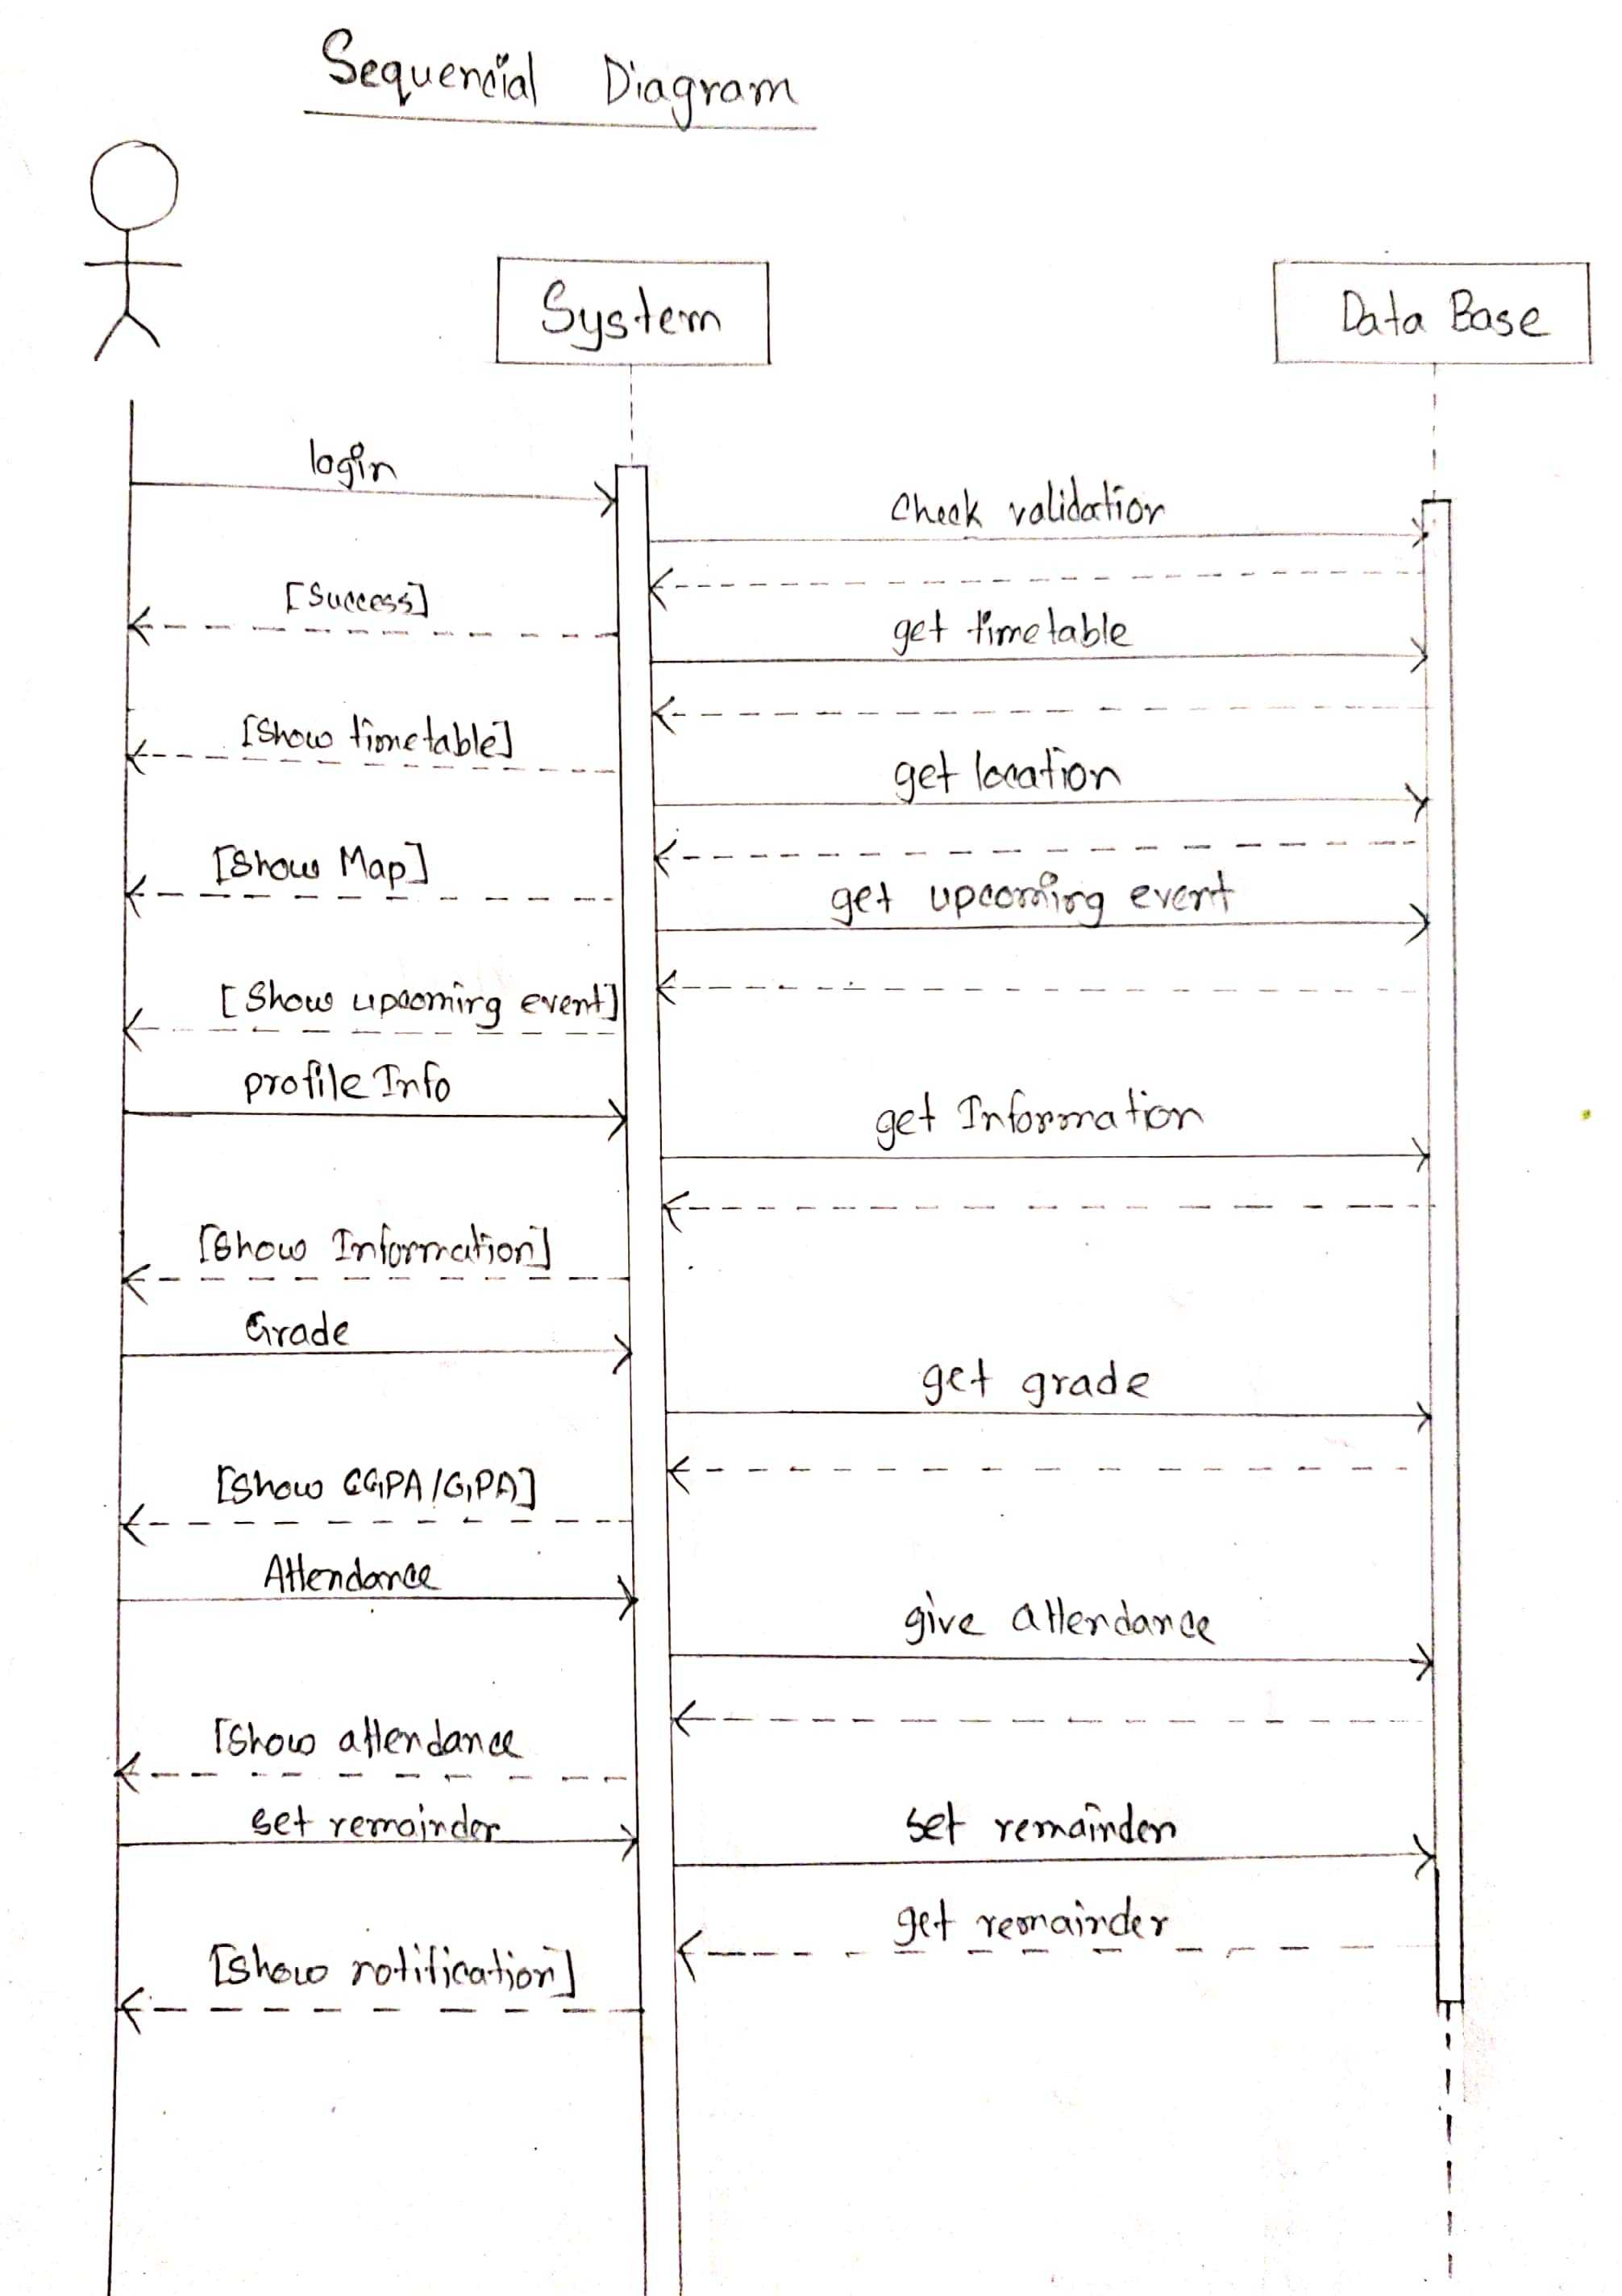 Sequencial Diagram
System
Data Base
login
Check validation
[Success]
get timetable
[Show timetable]
get location
[Show Map]
get upcoming event
[Show upcoming event]
profile Info
get Information
[Show Information]
Grade
get grade
[Show CGPA/GPA]
Attendance
give attendance
[Show attendance
set remainder
set remainder
get remainder
[Show notification]